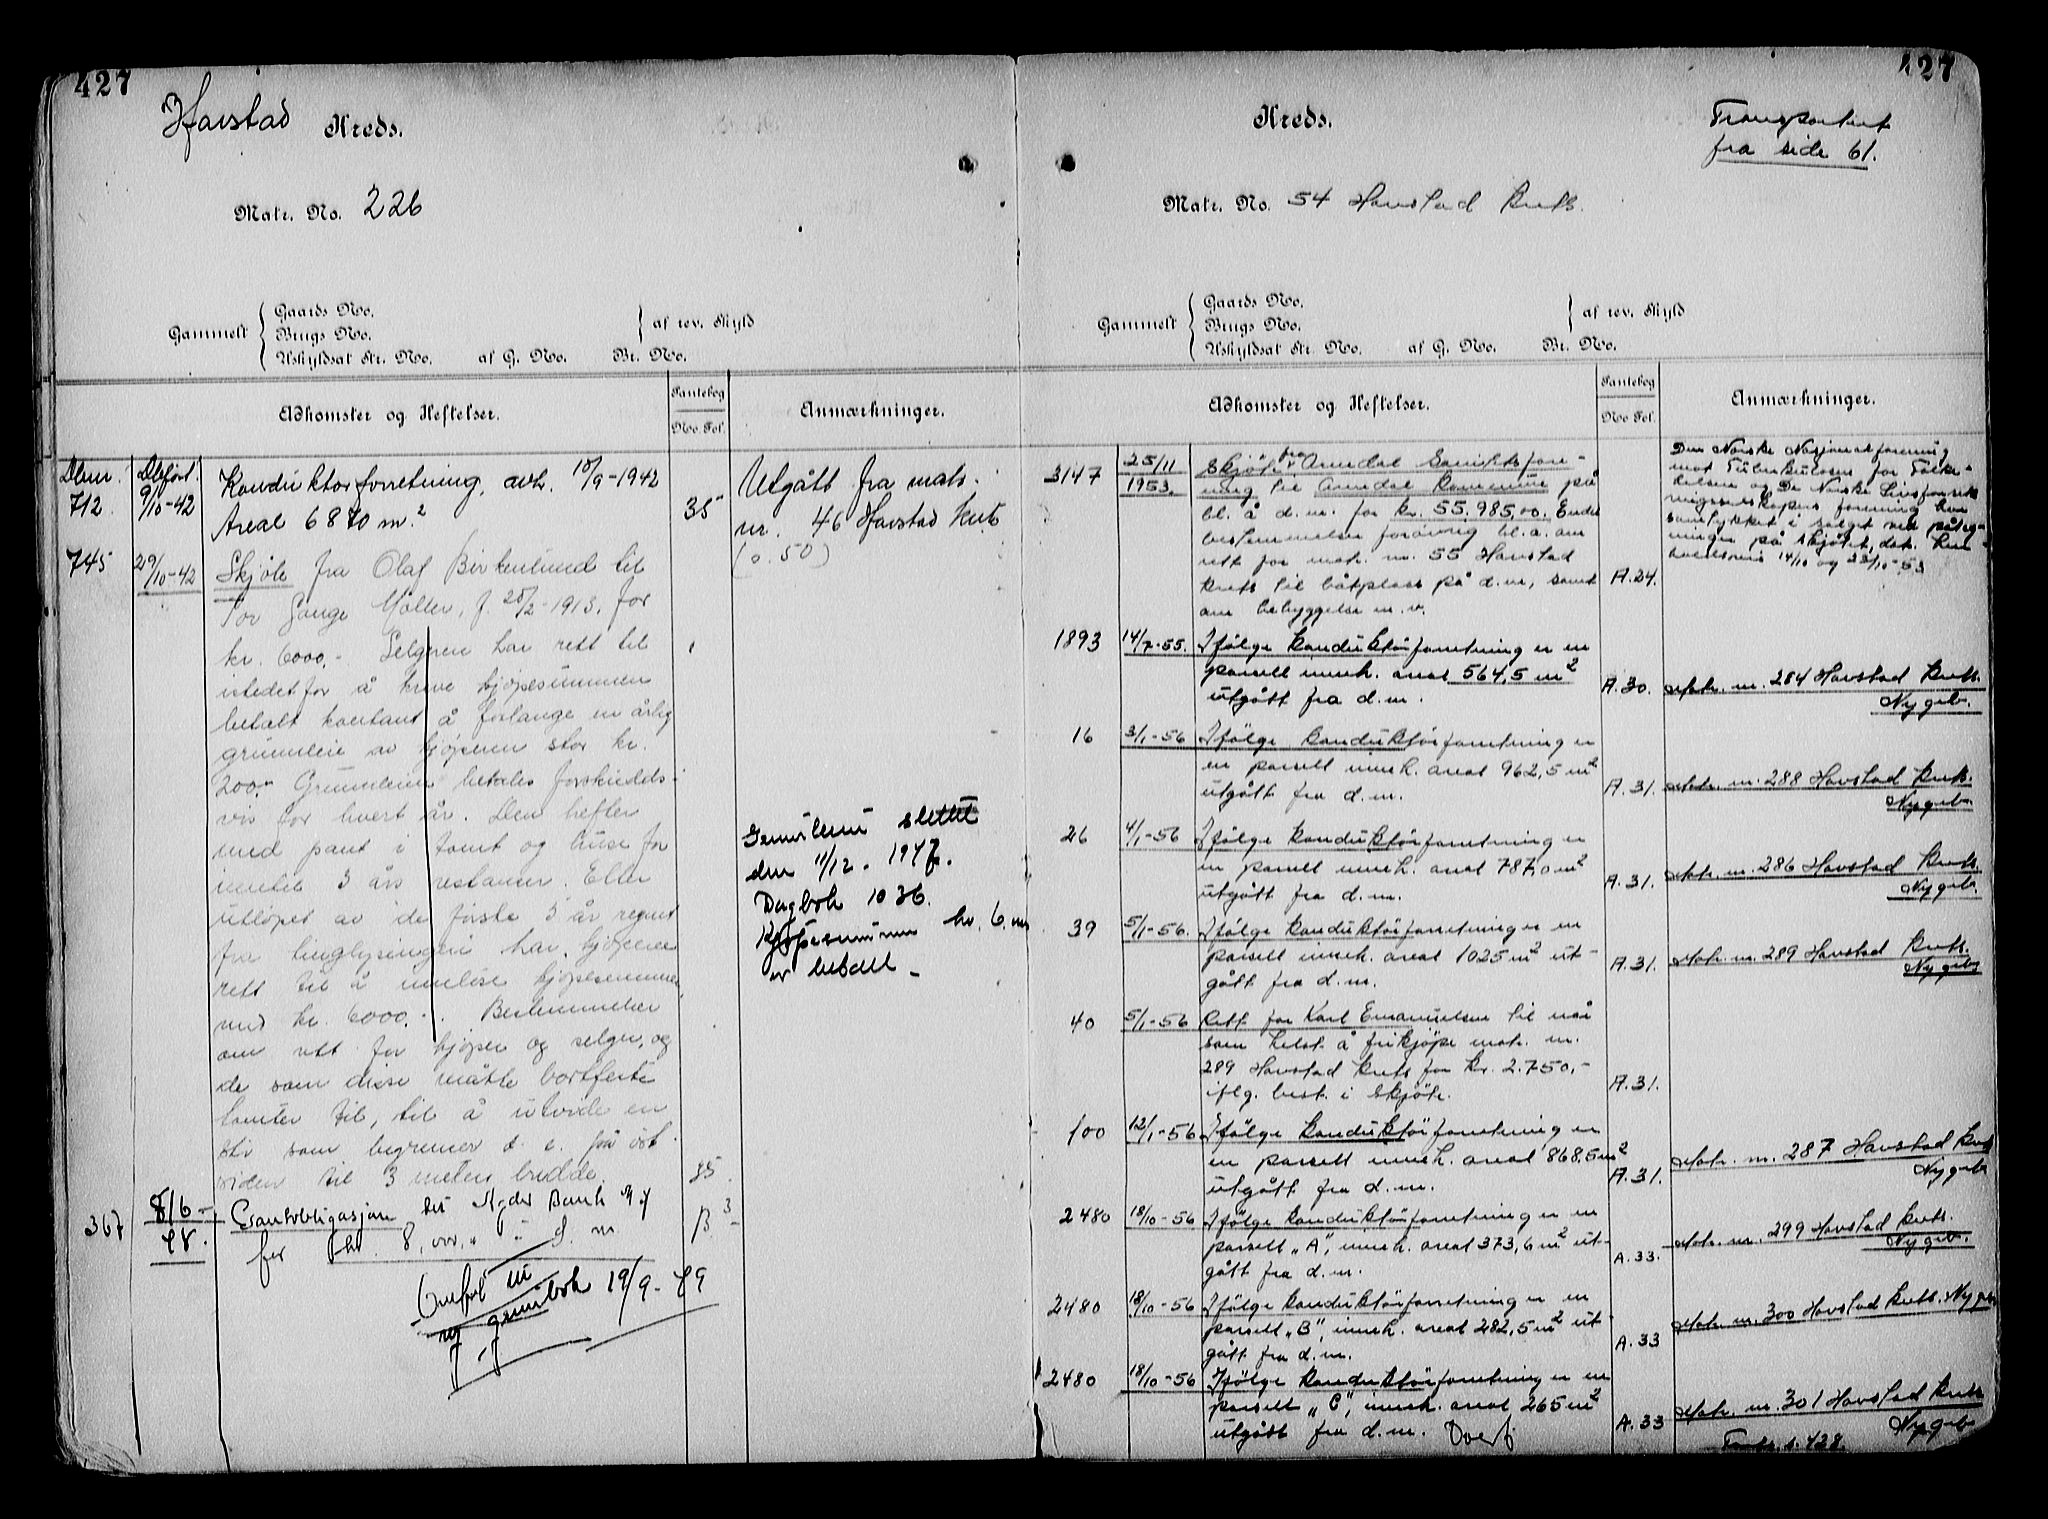 427
Havstad Kreds.
Matr. No. 226
Gammelt
Gaards No.
Brugs No.
Uskyldsat Str. No. af G. No. Br. No.
af rev. Skyld
Adkomster og Heftelser.
Pantebog
No. Fol.
Anmærkninger.
Dbnr. 712
Dbført 9/10-42
Konduktørforretning, avh. 10/9-1942
Areal 6870 m.²
35
Utgått fra matr.
nr. 46 Havstad krets
(s. 50)
745
29/10-42
Skjøte fra Olaf Birkenlund til
Tor Gange Møller, f. 20/2-1913, for
kr. 6000,- Selgeren har rett til
istedetfor å kreve kjøpesummen
betalt kontant å forlange en årlig
grunnleie av kjøperen stor kr.
200,- Grunnleien betales forskudds-
vis for hvert år. Den hefter
med pant i tomt og huse for
inntil 3 års restanser. Etter
utløpet av de første 5 år regnet
fra tinglysingen har kjøperen
rett til å innløse kjøpesummen
med kr. 6000.-. Bestemmelser
om rett for kjøper og selger, og
de som disse måtte bortfeste
tomter til, til å utvide en
sti som begrenser d. e. fra øst-
siden til 3 meters bredde.
35.
Grunnleien slettet
den 11/12. 1947.
Dagbok 1036.
Kjøpesummen kr. 6.000
er betalt -
367
8/6-48.
Panteobligasjon til Agder Bank A/S
for kr. 8,000,-
B 3
Overført til
ny grunnbok 19/9-79
427
Kreds.
Transportert
fra side 61.
Matr. No. 54 Havstad Krets.
Gammelt
Gaards No.
Brugs No.
Uskyldsat Str. No. af G. No. Br. No.
af rev. Skyld
Adkomster og Heftelser.
Pantebog
No. Fol.
Anmærkninger.
3147
25/11 1953.
Skjøte fra Arendal Sanitetsfore-
ning til Arendal kommune på
bl. å d.m. for kr. 55.985,00. Endel
bestemmelser forøvrig bl.a. om
rett for matr. nr. 55 Havstad
krets til båtplass på d.m., samt
om bebyggelse m.v.
A.24.
Den Norske Nasjonalforening
mot Tuberkulosen for Folke-
helsen og De Norske Livsforsik-
ringsselskapers forening har
samtykket i salget ved påteg-
ninger på skjøtet, dat. hen-
holdsvis 14/10 og 23/10-53
1893
14/7-55.
Ifølge konduktørforretning er en
parsell innh. areal 564,5 m²
utgått fra d.m.
A.30.
Matr. nr. 284 Havstad Krets.
Ny grb.
16
3/1-56
Ifølge konduktørforretning er
en parsell innh. areal 962,5 m²
utgått fra d.m.
A.31.
Matr. nr. 288 Havstad krets.
Ny grb.
26
4/1-56
Ifølge konduktørforretning er
en parsell innh. areal 787,0 m²
utgått fra d.m.
A.31.
Matr. nr. 286 Havstad krets.
Ny grb.
39
5/1-56.
Ifølge konduktørforretning er en
parsell innh. areal 1025 m² ut-
gått fra d.m.
A.31.
Matr. nr. 289 Havstad krets.
Ny grb.
40
5/1-56
Rett for Karl Emanuelsen til når
som helst å frikjøpe matr. nr.
289 Havstad krets for kr. 2.750,-
iflg. best. i skjøte.
A.31.
100
12/1-56
Ifølge konduktørforretning er
en parsell innh. areal 868,5 m²
utgått fra d.m.
A.31.
Matr. nr. 287 Havstad krets
Ny grb.
2480
18/10-56
Ifølge konduktørforretning er en
parsell „A", innh. areal 373,6 m² ut-
gått fra d.m.
A.33.
Matr. nr. 299 Havstad krets.
Ny grb.
2480
18/10-56
Ifølge konduktørforretning er en
parsell „B", innh. areal 282,5 m² ut-
gått fra d.m.
A.33
Matr. nr. 300 Havstad krets. Ny grb.
2480
18/10-56
Ifølge konduktørforretning er en
parsell „C", innh. areal 265 m²
utgått fra d.m. Overf.
A.33
Matr. nr. 301 Havstad krets
Ny grb.
Transp. s. 428.